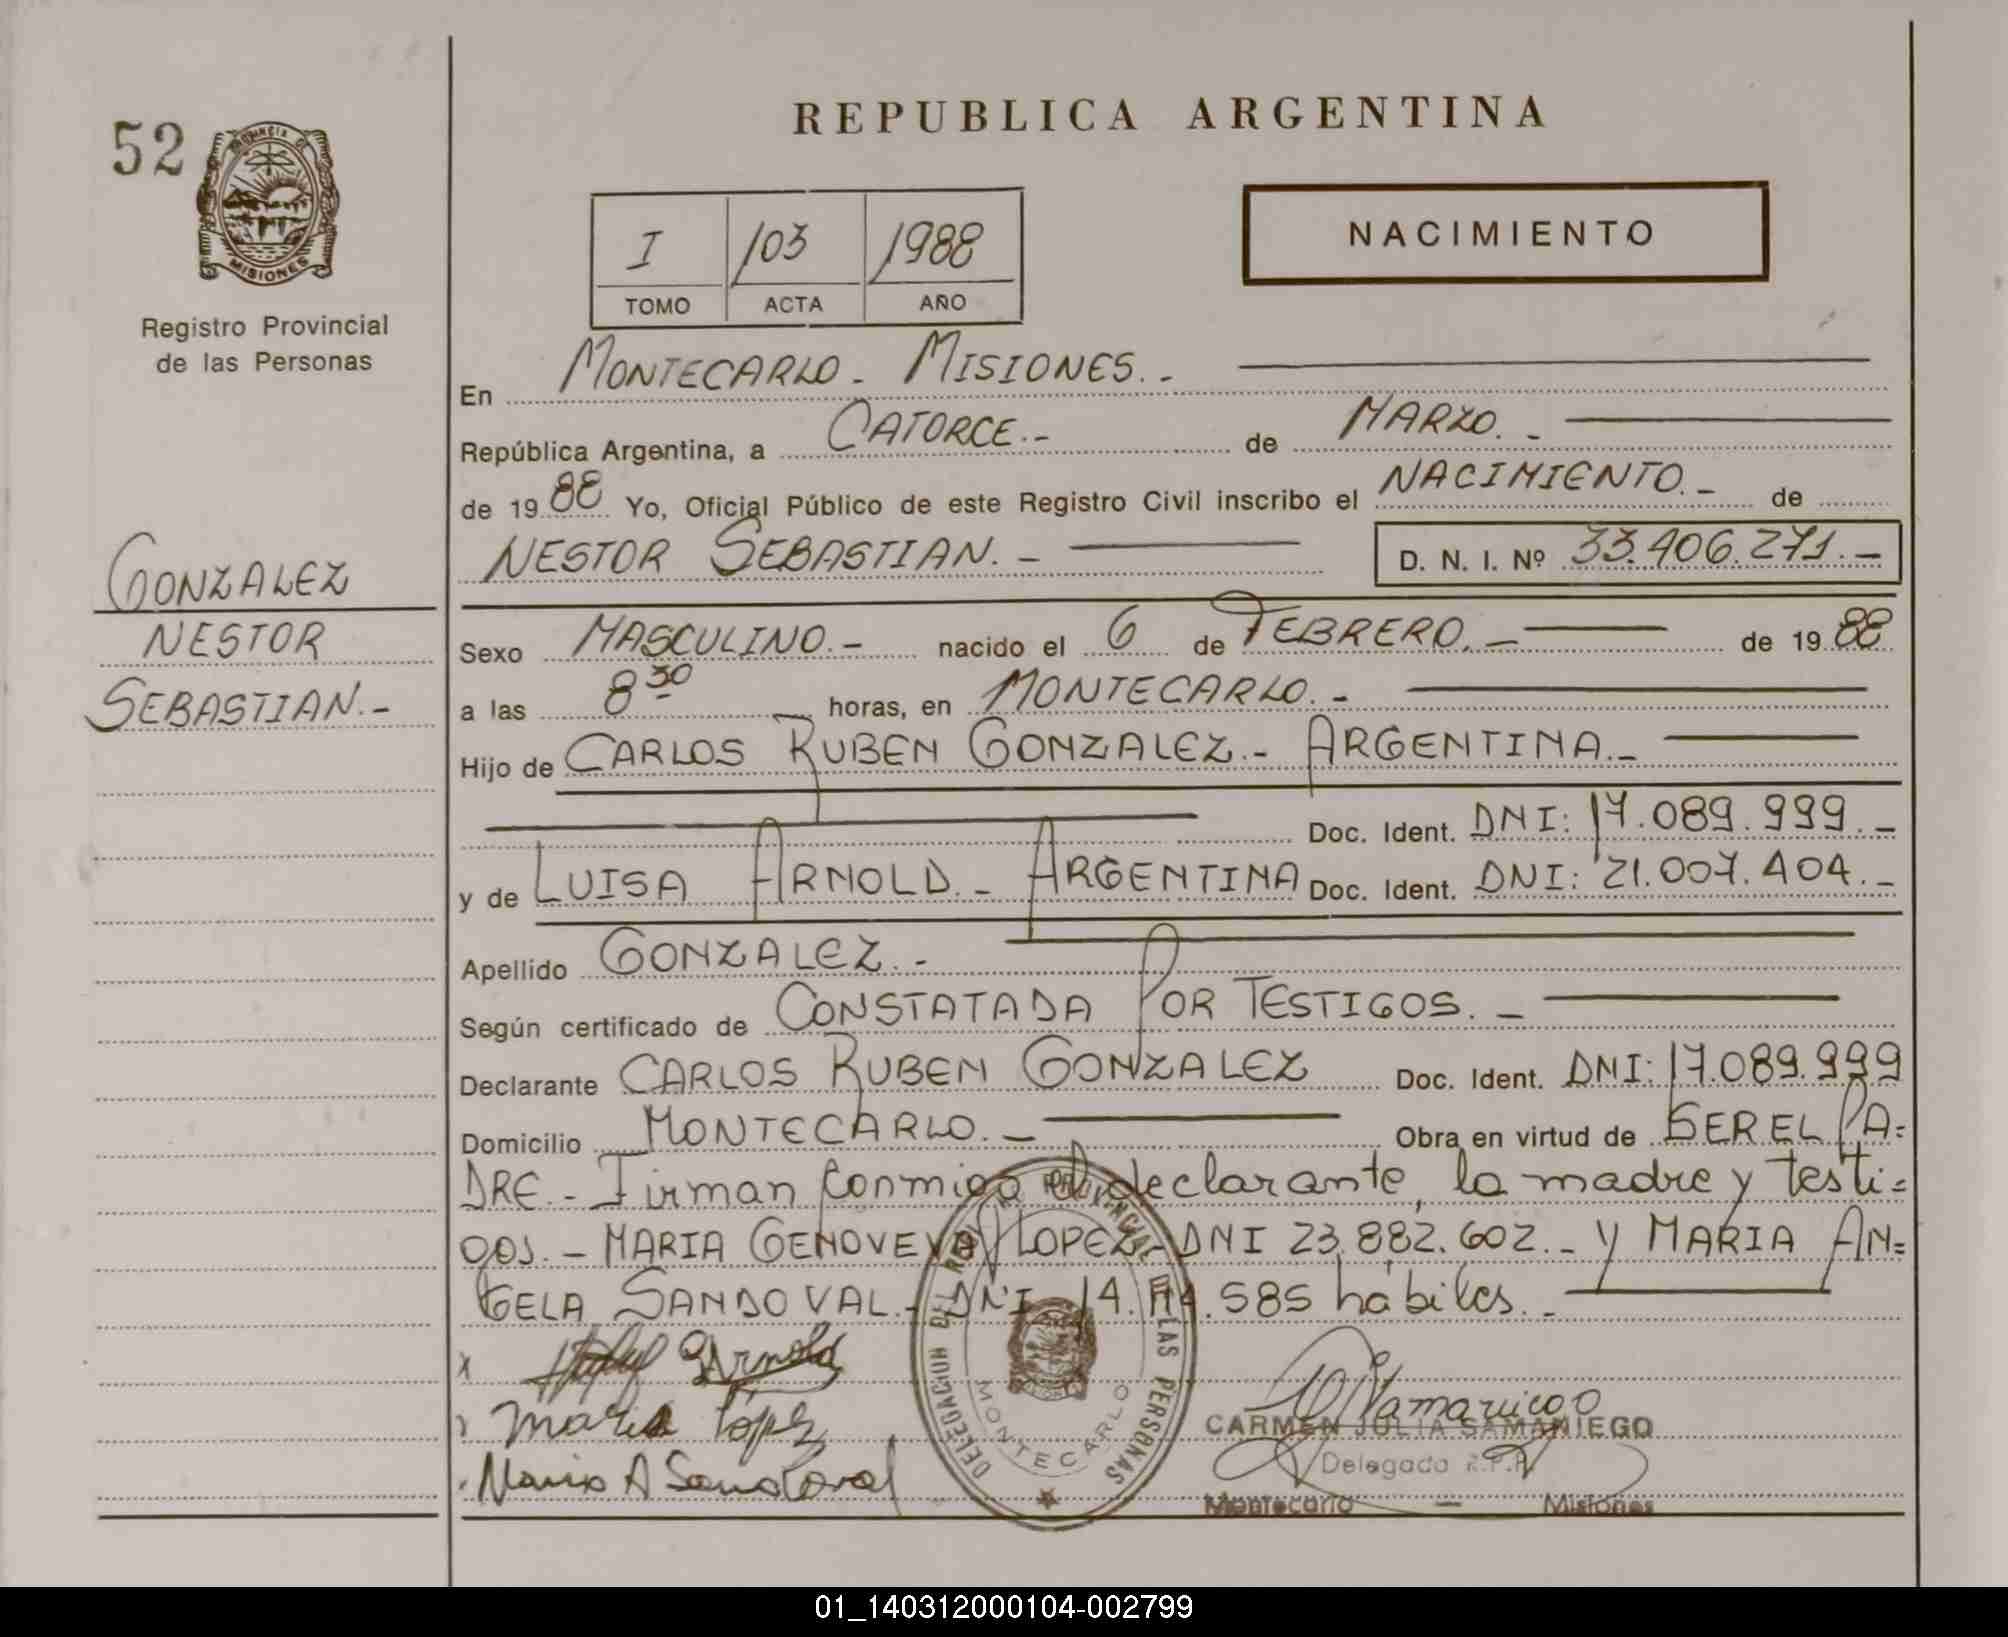 52
PROVINCIA DE
MISIONES
Registro Provincial
de las Personas
GONZALEZ
NESTOR
SEBASTIAN.-
REPUBLICA ARGENTINA
I 103 1988
TOMO ACTA AÑO
NACIMIENTO
En MONTECARLO - MISIONES.-
República Argentina, a CATORCE.- de MARZO.-
de 1988 Yo, Oficial Público de este Registro Civil inscribo el NACIMIENTO.- de
NESTOR SEBASTIAN.- D. N. I. Nº 33.406.271.-
Sexo MASCULINO.- nacido el 6 de FEBRERO.- de 1988
a las 8 30 horas, en MONTECARLO.-
Hijo de CARLOS RUBEN GONZALEZ.- ARGENTINA.-
Doc. Ident. DNI: 17.089.999.-
y de LUISA ARNOLD.- ARGENTINA Doc. Ident. DNI: 21.007.404.-
Apellido GONZALEZ.-
Según certificado de CONSTATADA POR TESTIGOS.-
Declarante CARLOS RUBEN GONZALEZ Doc. Ident. DNI: 17.089.999
Domicilio MONTECARLO.- Obra en virtud de SER EL PA=
DRE.- Firman conmigo el declarante, la madre y testi=
gos.- MARIA GENOVEVA LOPEZ- DNI 23.882.602.- Y MARIA AN=
GELA SANDOVAL.- DNI 14.114.585 hábiles.-
x Arnold
Maria López
Maria A Sandoval
DELEGACION DEL REGISTRO PROVINCIAL DE LAS PERSONAS
MONTECARLO
CARMEN JULIA SAMANIEGO
Delegada R.P.P.
Montecarlo - Misiones
01_140312000104-002799